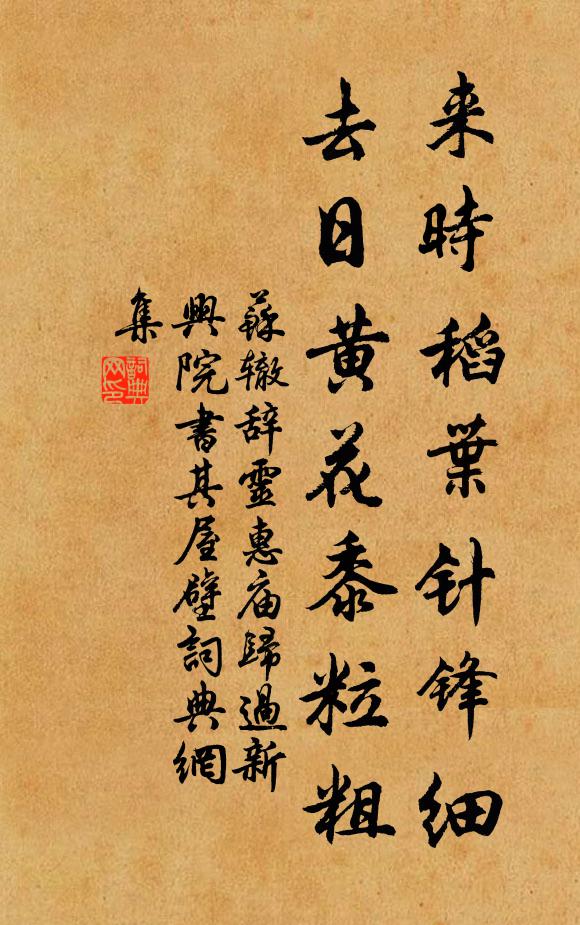 来時稻葉针锋细
去日黄花黍粒粗
蘇辙辞靈惠庙歸過新
興院書其屋壁詞典網
集
詞典网印